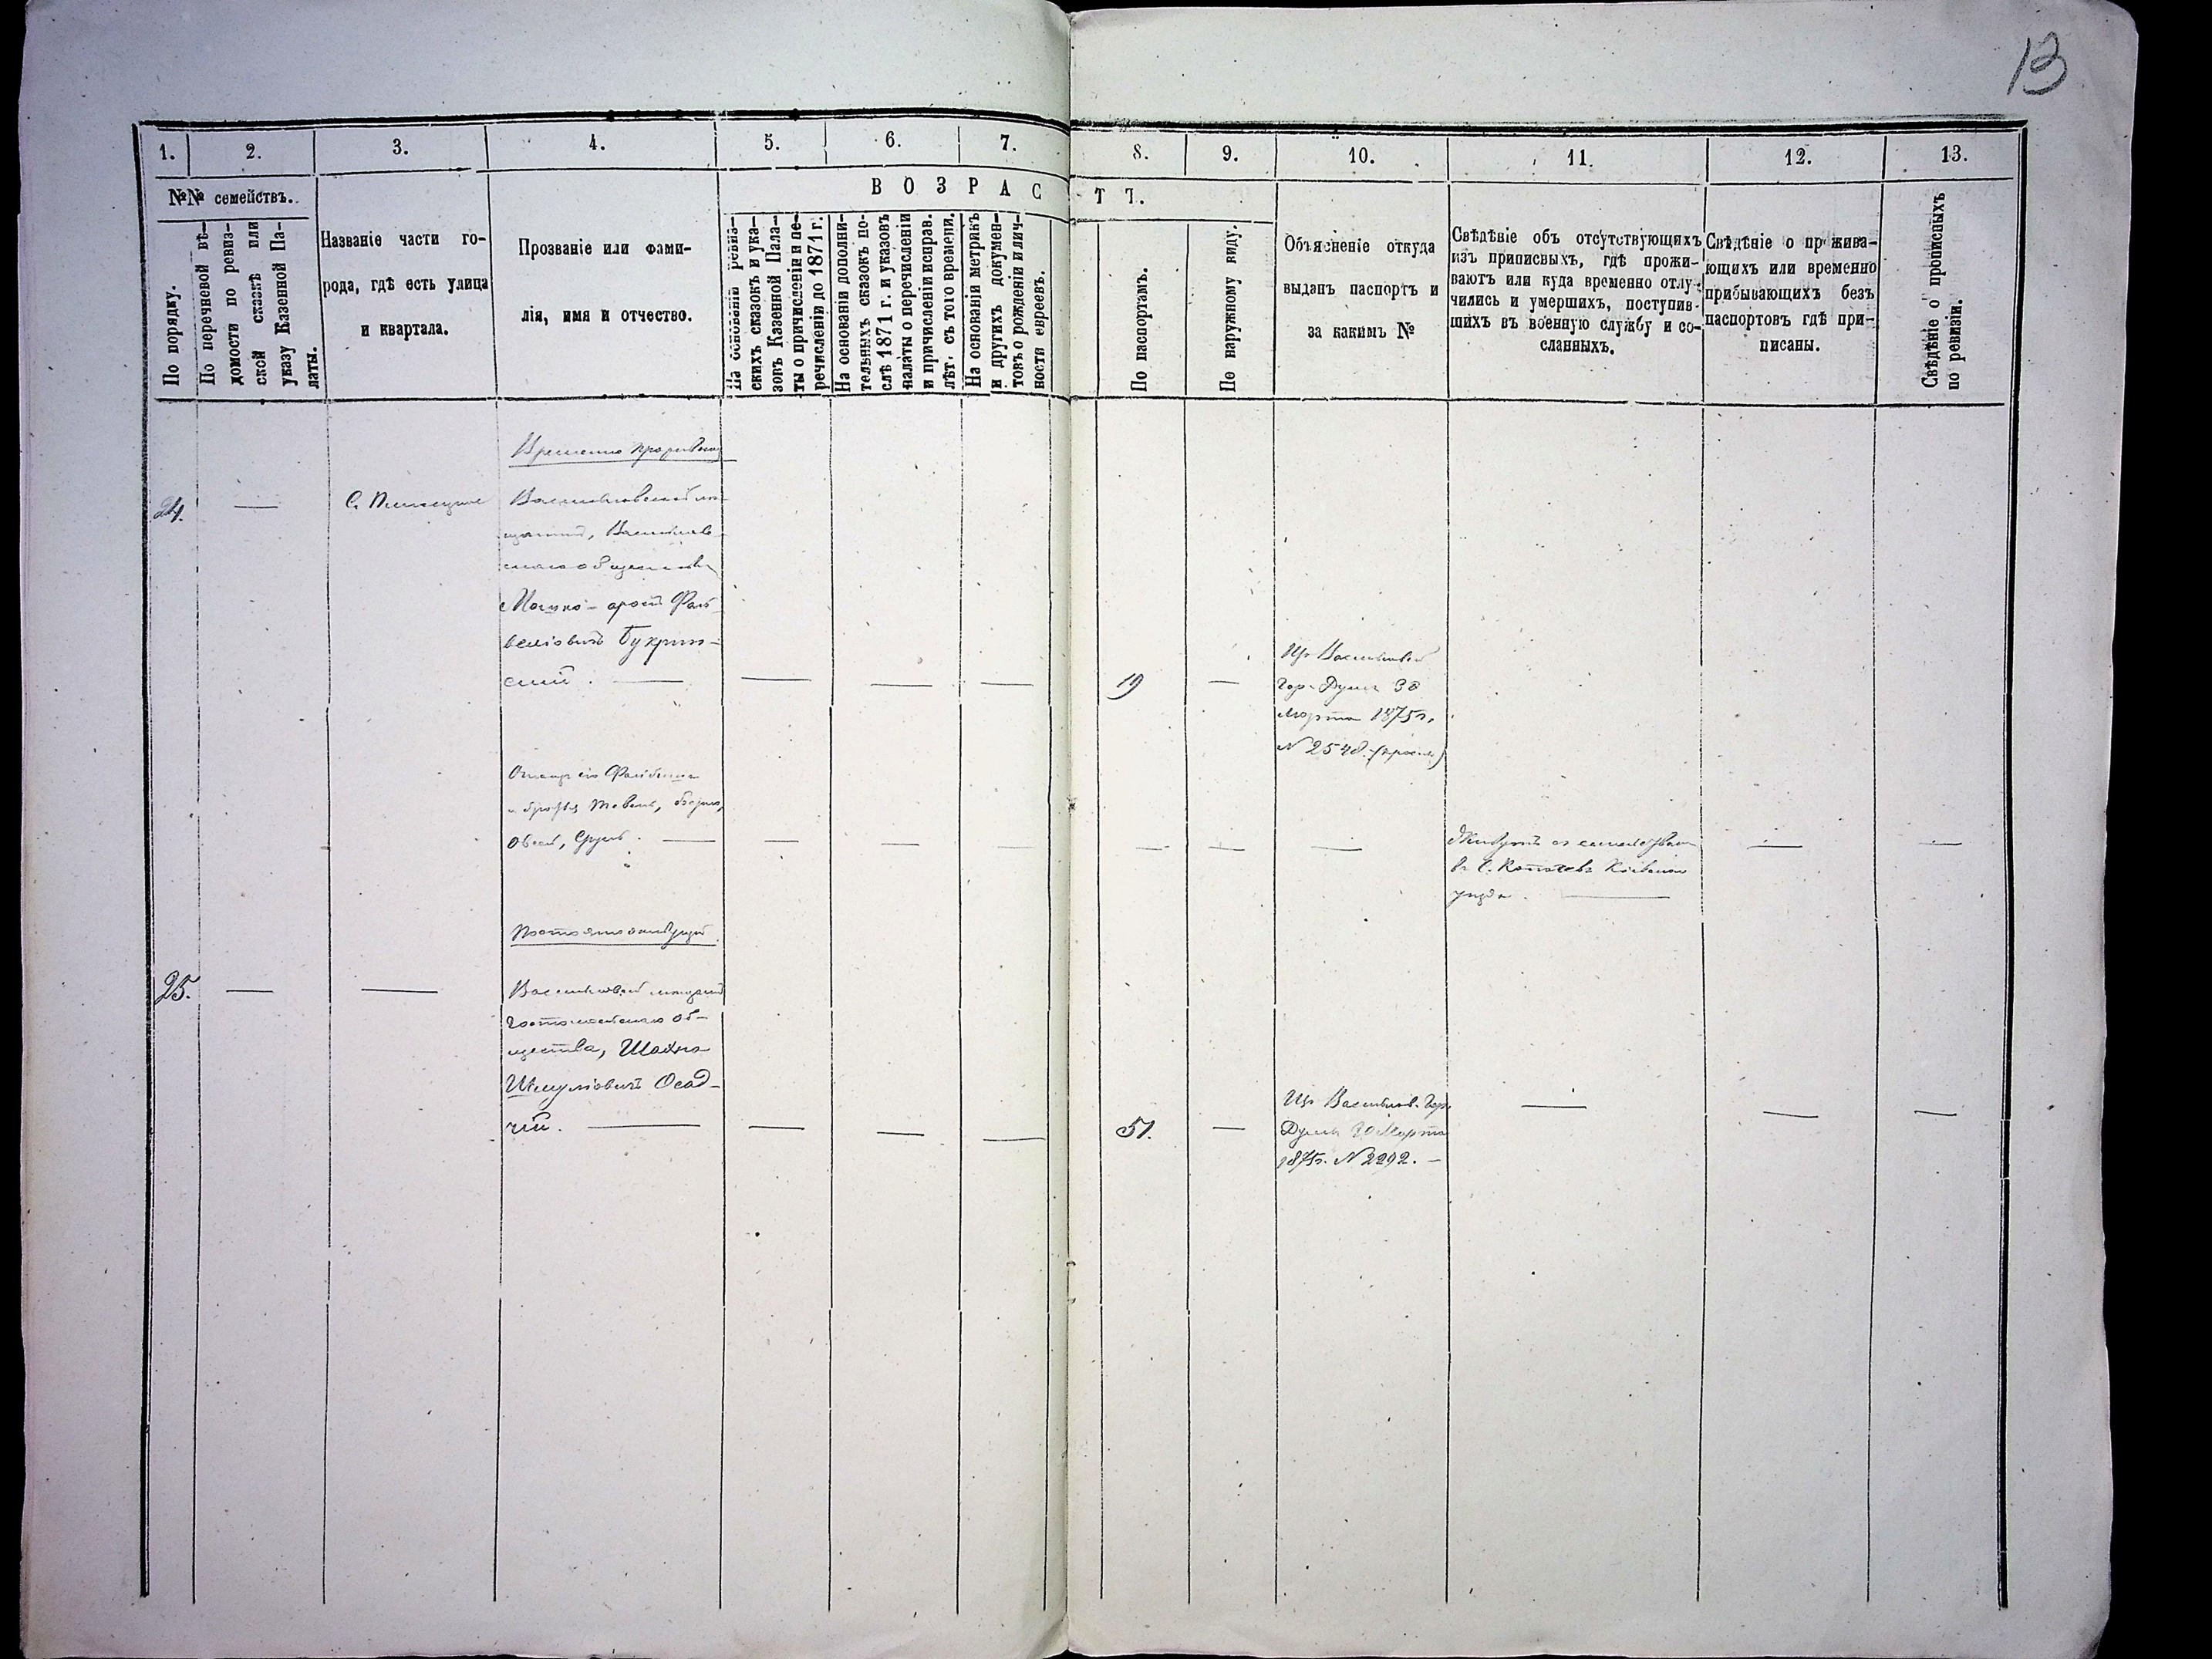 13
1. 2. 3. 4. 5. 6. 7. 8. 9. 10. 11. 12. 13.
№№ семействъ.
По порядку.
По перечневой вѣ-
домости по ревиз-
ской сказкѣ или
указу Казенной Па-
латы.
Названіе части го-
рода, гдѣ есть улица
и квартала.
Прозваніе или фами-
лія, имя и отчество.
ВОЗРАСТЪ.
На основаніи ревиз-
скихъ сказокъ и ука-
зокъ Казенной Пала-
ты о причисленіи и пе-
речисленіи до 1871 г.
На основаніи дополни-
тельныхъ сказокъ по-
слѣ 1871 г. и указовъ
палаты о перечисленіи
и причисленіи исправ.
лѣт. съ того времени.
На основаніи метрикъ
и другихъ докумен-
товъ о рожденіи и лич-
ности евреевъ.
По паспортамъ.
По наружному виду.
Объясненіе откуда
выданъ паспортъ и
за какимъ №
Свѣдѣніе объ отсутствующихъ
изъ приписныхъ, гдѣ прожи-
ваютъ или куда временно отлу-
чились и умершихъ, поступив-
шихъ въ военную службу и со-
сланныхъ.
Свѣдѣніе о прожива-
ющихъ или временно
прибывающихъ безъ
паспортовъ гдѣ при-
писаны.
Свѣдѣніе о прописныхъ
по ревизіи.
Временно
24. — С.
Васильковскій мѣ-
щанинъ,
общества
Мошко-
веліовичъ Букрин-
скій. — — — — 19 —
Изъ Васильков.
Гор. Думы 30
Марта 1875 г.
№ 2548.
Отецъ его
и братья
Овсей, Сруль. — — — — — — —
Живутъ съ семействомъ
въ С. Кіевскаго
уѣзда. — — —
Постоянно живущій
25. — —
Васильковскій мѣщанинъ
об-
щества,
Шмуліовичъ Осад-
чій. — — — — 51. —
Изъ Васильков. Гор.
Думы Марта
1875 г. № 2292. — — — —